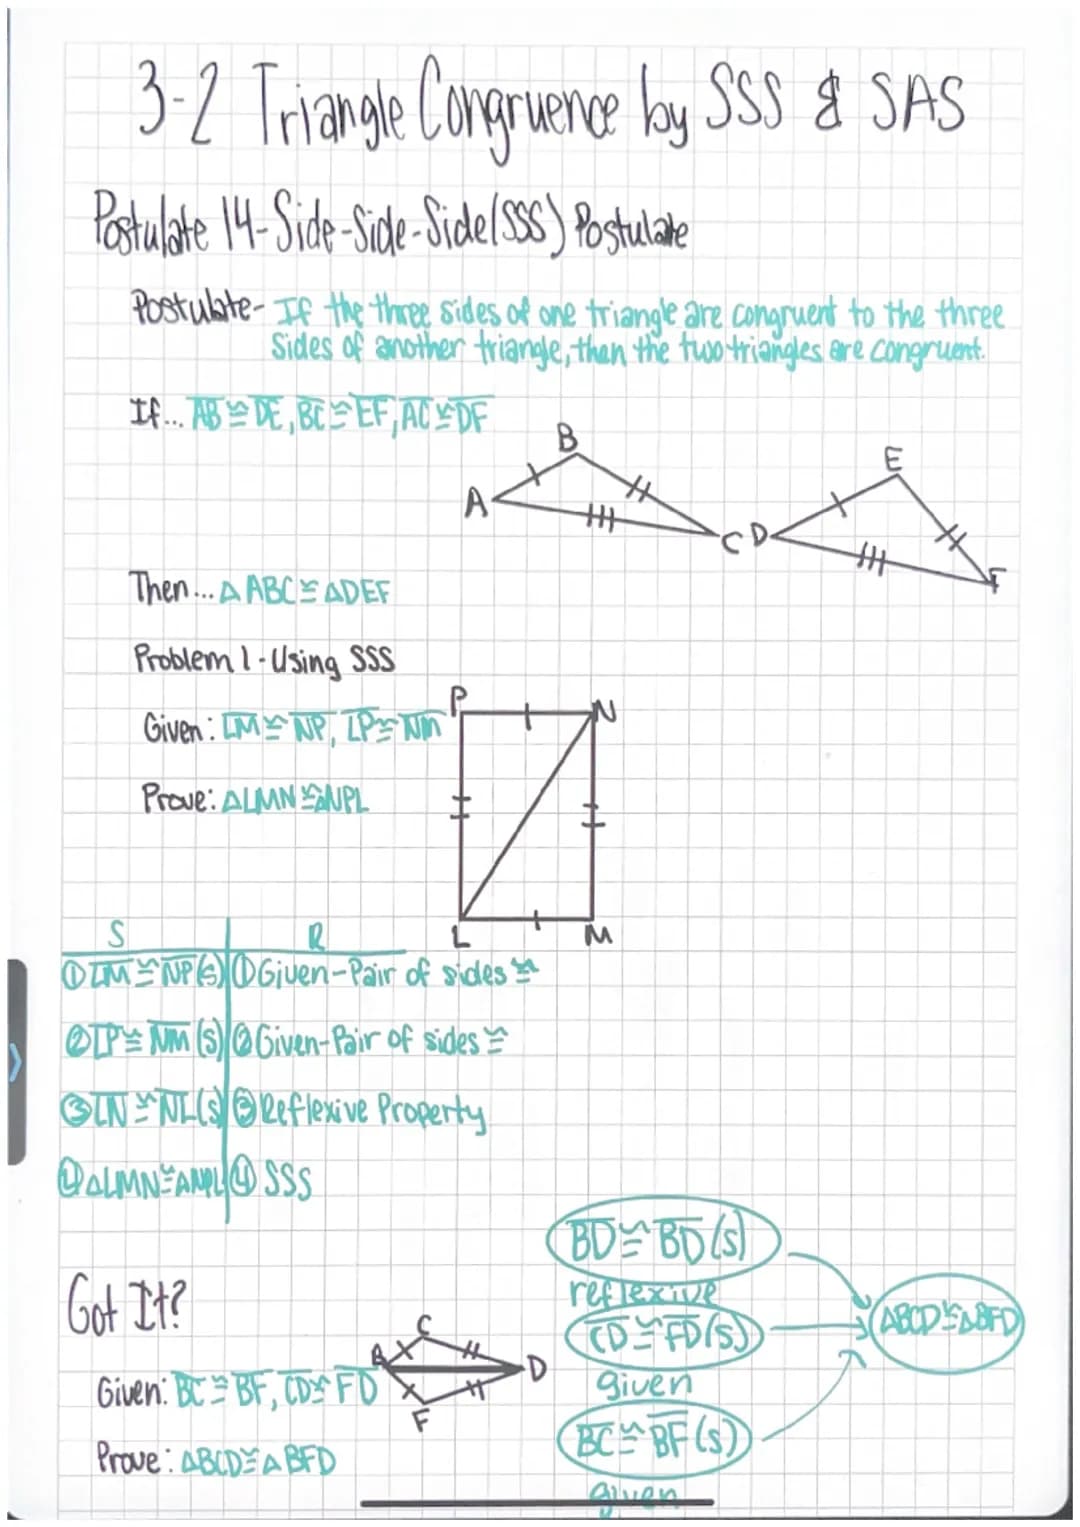 3-2 Triangle Congruence by SSS & SAS
Postulate 14-Side-Side-Side(SSS) Postulate
Postulate- If the three sides of one triangle are congruent to the three
sides of another triangle, then the two triangles are congruent.
If... AB ≅ DE, BC ≅ EF, AC ≅ DF
B
E
A
C
D
F
Then... △ABC ≅ △DEF
Problem 1-Using SSS
P
N
Given: LM ≅ NP, LP ≅ NM
Prove: △LMN ≅ △NPL
L
M
S R
① LM ≅ NP (S) ① Given-Pair of sides ≅
② LP ≅ NM (S) ② Given-Pair of sides ≅
③ LN ≅ NL (S) ③ Reflexive Property
④ △LMN ≅ △NPL ④ SSS
Got It?
C
B
D
F
Given: BC ≅ BF, CD ≅ FD
Prove: △BCD ≅ △BFD
BD ≅ BD (S)
reflexive
CD ≅ FD (S)
given
BC ≅ BF (S)
given
△BCD ≅ △BFD